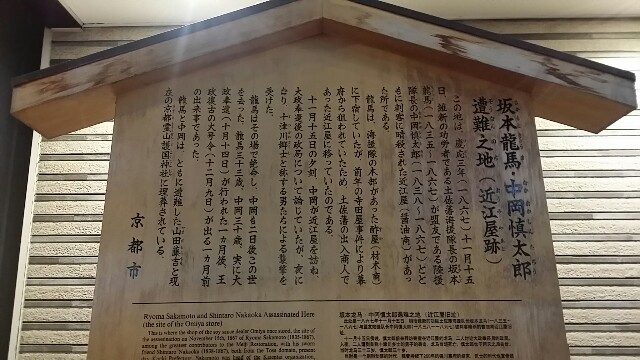 坂本龍馬・中岡慎太郎
遭難之地（近江屋跡）
この地は、慶応三年（一八六七）十一月十五
日、維新の功労者である土佐藩海援隊長の坂本
龍馬（一八三五〜一八六七）が盟友である陸援
隊長の中岡慎太郎（一八三八〜一八六七）とと
もに刺客に暗殺された近江屋（醤油商）があっ
た所である。
龍馬は、海援隊の本部があった酢屋（材木商）
に下宿していたが、前年の寺田屋事件により幕
府から狙われていたため、土佐藩の出入商人で
あった近江屋に移っていたのである。
十一月十五日の夕刻、中岡が近江屋を訪ね
大政奉還後の政局について論じていたが、夜に
なり、十津川郷士と称する男たちによる襲撃を
受けた。
龍馬はその場で絶命し、中岡も二日後この世
を去った。龍馬三十三歳、中岡三十歳、実に大
政奉還（十月十四日）が行われた一カ月後、王
政復古の大号令（十二月九日）が出る一カ月前
の出来事であった。
龍馬と中岡は、ともに遭難した山田藤吉と現
在の京都霊山護国神社に埋葬されている。
京都市
Ryoma Sakamoto and Shintaro Nakaoka Assassinated Here
(the site of the Omiya store)
This is where the shop of the soy sauce dealer Omiya once stood, the site of
the assassination on November 15th, 1867 of Ryoma Sakamoto (1835-1867),
among the greatest contributors to the Meiji Restoration, with his sworn
friend Shintaro Nakaoka (1838-1867), both from the Tosa domain, present
坂本龙马・中冈慎太郎遇难之地（近江屋旧址）